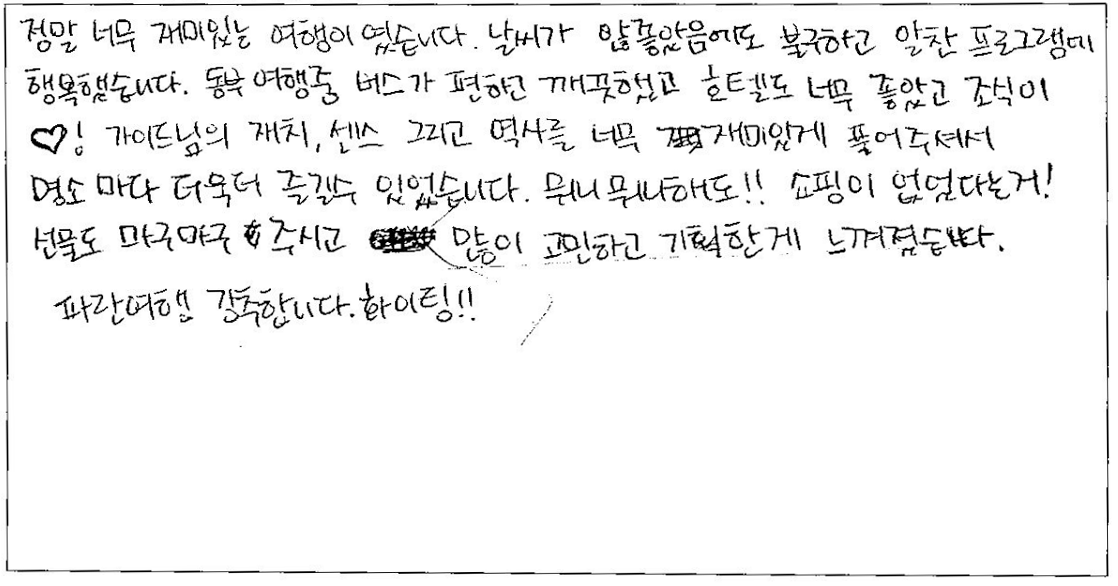 정말 너무 재미있는 여행이 였습니다. 날씨가 않좋았음에도 불구하고 알찬 프로그램에
행복했습니다. 동부여행중 버스가 편하고 깨끗했고 호텔도 너무 좋았고 조식이
♡! 가이드님의 재치, 센스 그리고 역사를 너무 재미있게 풀어주셔서
명소마다 더욱더 즐길수 있었습니다. 뭐니뭐니해도!! 쇼핑이 없었다는거!
선물도 마구마구 주시고 많이 고민하고 기획한게 느껴졌습니다.
파란여행 강추합니다. 화이팅!!